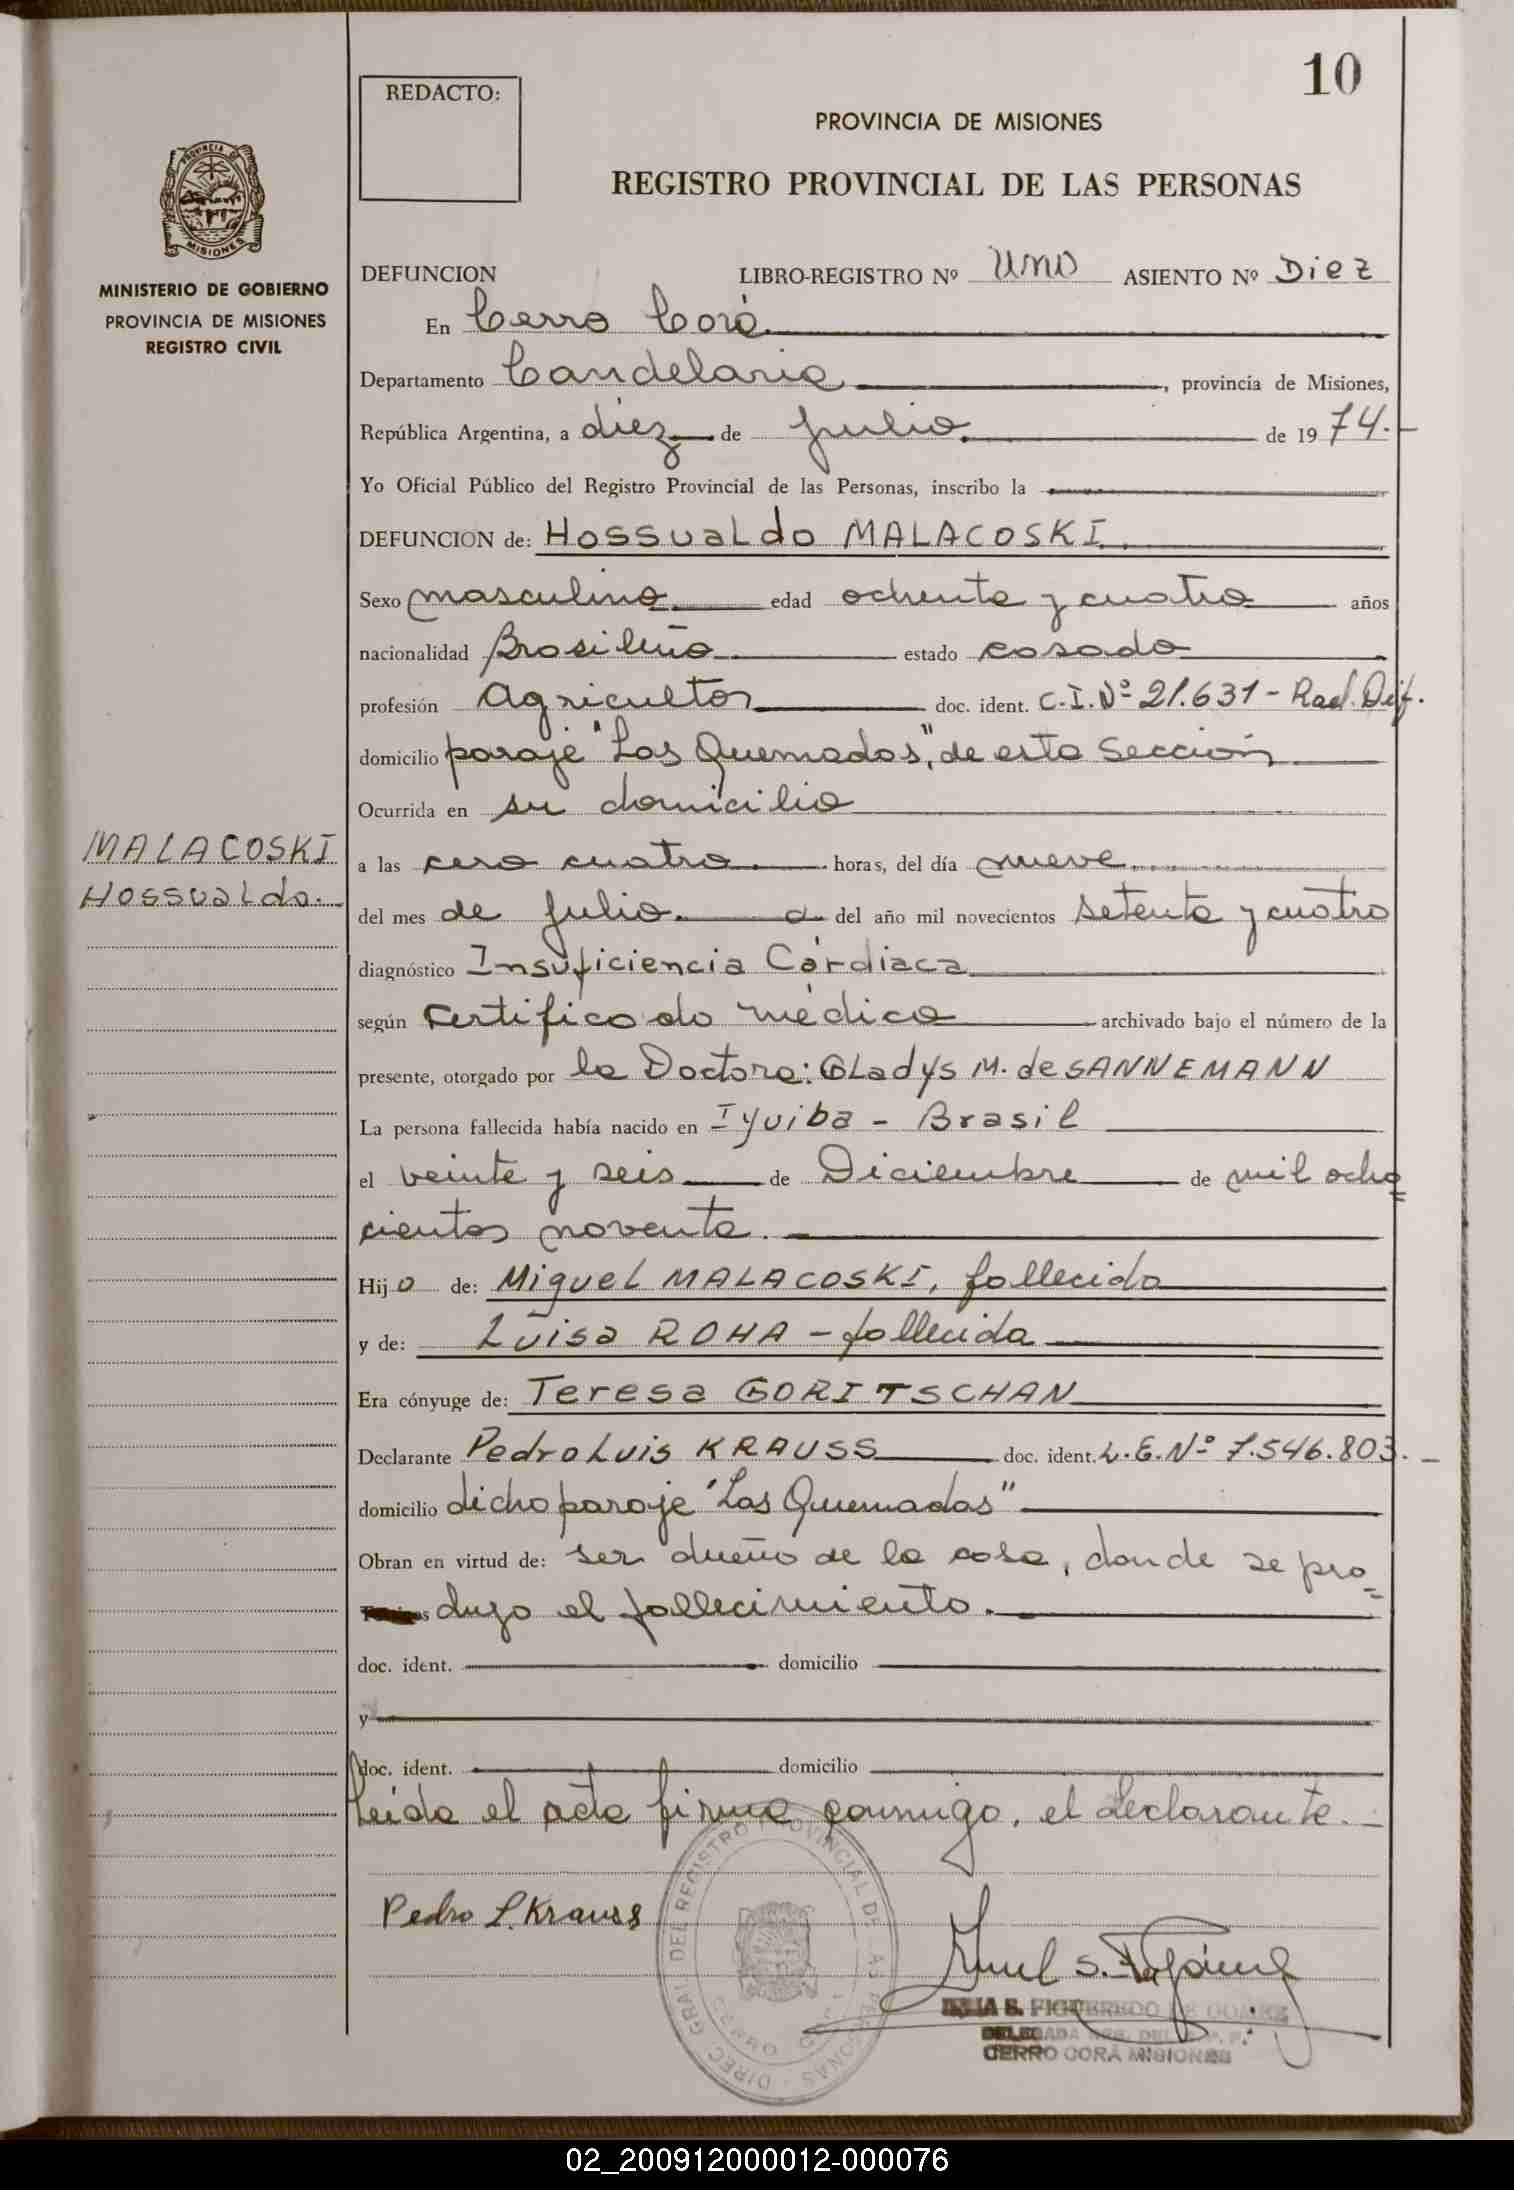 10
REDACTO:
PROVINCIA DE MISIONES
REGISTRO PROVINCIAL DE LAS PERSONAS
PROVINCIA DE
MISIONES
MINISTERIO DE GOBIERNO
PROVINCIA DE MISIONES
REGISTRO CIVIL
DEFUNCION LIBRO-REGISTRO Nº UNO ASIENTO Nº Diez
En Cerro Corá
Departamento Candelaria, provincia de Misiones,
República Argentina, a diez de julio de 1974.-
Yo Oficial Público del Registro Provincial de las Personas, inscribo la
DEFUNCION de: Hossualdo MALACOSKI.
Sexo masculino edad ochenta y cuatro años
nacionalidad Brasileño estado casado
profesión Agricultor doc. ident. C.I.Nº 21.631 - Rad. Def.
domicilio paraje "Los Quemados", de esta Sección
Ocurrida en su domicilio
MALACOSKI
Hossualdo.-
a las cero cuatro horas, del día nueve
del mes de julio. a del año mil novecientos setenta y cuatro
diagnóstico Insuficiencia Cárdiaca
según certificado médico archivado bajo el número de la
presente, otorgado por la Doctora: GLadys M. de SANNEMANN
La persona fallecida había nacido en Iyuiba - Brasil
el veinte y seis de Diciembre de mil ocho=
cientos noventa.
Hijo de: Miguel MALACOSKI, fallecido
y de: Luisa ROHA - fallecida
Era cónyuge de: Teresa GORITSCHAN
Declarante Pedro Luis KRAUSS doc. ident. L.E.Nº 7.546.803.-
domicilio dicho paraje "Los Quemados"
Obran en virtud de: ser dueño de la casa, donde se pro=
dujo el fallecimiento.
doc. ident. domicilio
y
doc. ident. domicilio
Leída el acta firma conmigo, el declarante.-
Pedro L. Krauss
DIREC. GRAL DEL REGISTRO PROVINCIAL DE LAS PERSONAS
CERRO CORA
E. FIGUEREDO DE GOMEZ
DELEGADA
CERRO CORA MISIONES
02_200912000012-000076